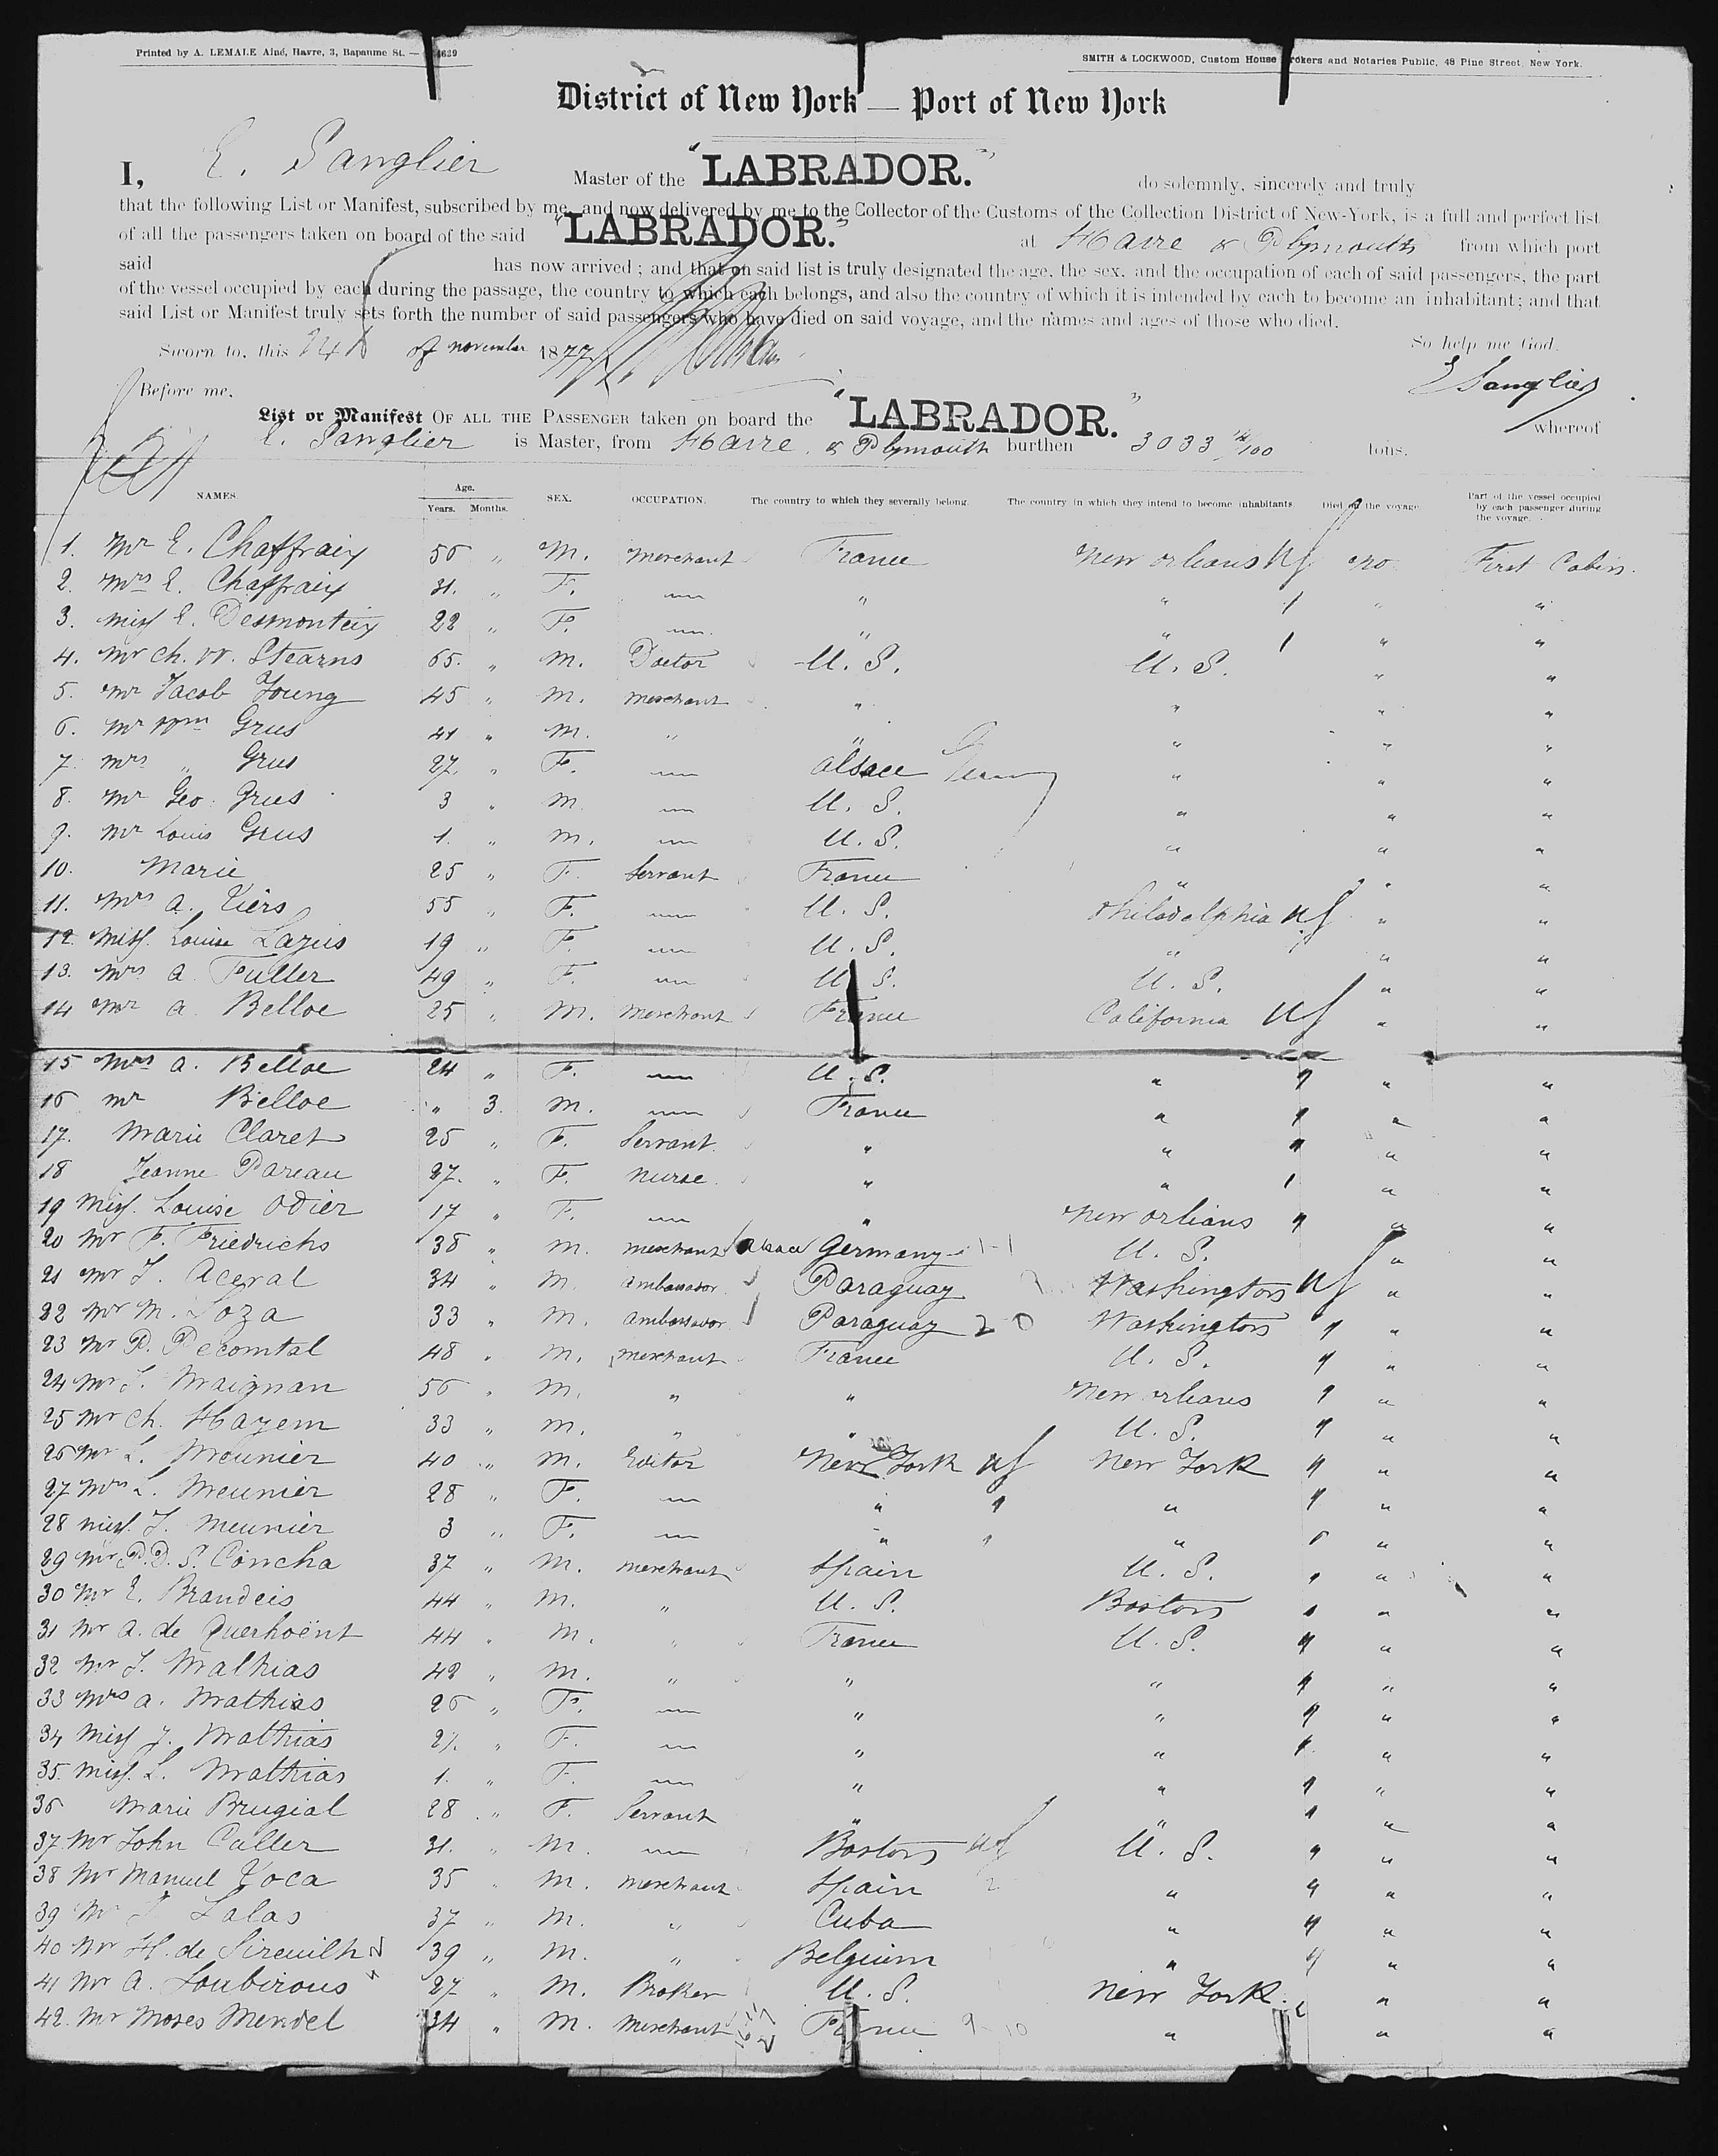 Printed by A. LEMALE Aîné, Havre, 3, Bapaume St. — 4639
SMITH & LOCKWOOD, Custom House Brokers and Notaries Public, 48 Pine Street, New York.
District of New York — Port of New York
I, E. Sanglier Master of the "LABRADOR." do solemnly, sincerely and truly
that the following List or Manifest, subscribed by me, and now delivered by me to the Collector of the Customs of the Collection District of New-York, is a full and perfect list
of all the passengers taken on board of the said "LABRADOR." at Havre & Plymouth from which port
said has now arrived; and that on said list is truly designated the age, the sex, and the occupation of each of said passengers, the part
of the vessel occupied by each during the passage, the country to which each belongs, and also the country of which it is intended by each to become an inhabitant; and that
said List or Manifest truly sets forth the number of said passengers who have died on said voyage, and the names and ages of those who died.
Sworn to, this 24 of november 1877 So help me God.
Before me, E Sanglier
List or Manifest OF ALL THE PASSENGER taken on board the "LABRADOR." whereof
E. Sanglier is Master, from Havre & Plymouth burthen 3033 /100 tons.
NAMES. Age. Years. Months. SEX. OCCUPATION. The country to which they severally belong. The country in which they intend to become inhabitants. Died on the voyage. Part of the vessel occupied by each passenger during the voyage.
1. Mr E. Chaffraix 56 " M. Merchant France New Orleans no First Cabin.
2. Mrs E. Chaffraix 31. " F. — " " " "
3. Miss E. Desmonteix 22 " F. — " " " "
4. Mr Ch. W. Stearns 65. " M. Doctor U. S. U. S. " "
5. Mr Jacob Young 45 " M. Merchant " " " "
6. Mr Wm Grus 41 " M. " " " " "
7. Mrs " Grus 27. " F. — Alsace " " "
8. Mr Geo. Grus 3 " M. — U. S. " " "
9. Mr Louis Grus 1. " M. — U. S. " " "
10. Marie 25 " F. Servant France " " "
11. Mrs A. Viers 55 " F. — U. S. Philadelphia " "
12. Miss. Louise Lazus 19 " F. — U. S. " " "
13. Mrs A. Fuller 49 " F. — U. S. U. S. " "
14 Mr A. Belloe 25 " M. Merchant France California " "
15 Mrs A. Belloe 24 " F. — U. S. " " "
16 Mr Belloe " 3. M. — France " " "
17. Marie Claret 25 " F. Servant " " " "
18 Jeanne Pareau 27. " F. Nurse " " " "
19 Miss. Louise Odier 17 " F. — " New Orleans " "
20 Mr F. Friedrichs 38 " M. Merchant Germany U. S. " "
21 Mr J. Aceval 34 " M. Ambassador Paraguay Washington " "
22 Mr M. Loza 33 " M. Ambassador Paraguay Washington " "
23 Mr P. Decomtal 48 " M. Merchant France U. S. " "
24 Mr J. Maignan 56 " M. " " New Orleans " "
25 Mr Ch. Hayem 33 " M. " " U. S. " "
26 Mr L. Meunier 40 " M. Editor New York New York " "
27 Mrs L. Meunier 28 " F. — " " " "
28 Miss. J. Meunier 3 " F. — " " " "
29 Mr P. D. S. Concha 37 " M. Merchant Spain U. S. " "
30 Mr E. Brandeis 44 " M. " U. S. Boston " "
31 Mr A. de Querhoënt 44 " M. " France U. S. " "
32 Mr J. Mathias 42 " M. " " " " "
33 Mrs A. Mathias 26 " F. — " " " "
34 Miss J. Mathias 2 " F. — " " " "
35. Miss. L. Mathias 1. " F. — " " " "
36 Marie Brugial 28 " F. Servant " " " "
37. Mr John Culler 31. " M. — Boston U. S. " "
38 Mr Manuel Voca 35 " M. Merchant Spain " " "
39 Mr Lalas 37 " M. " Cuba " " "
40 Mr H. de Sireuilh 39 " M. " Belgium " " "
41 Mr A. Loubirous 27 " M. Broker U. S. New York " "
42. Mr Moses Mendel 34 " M. Merchant France " " "